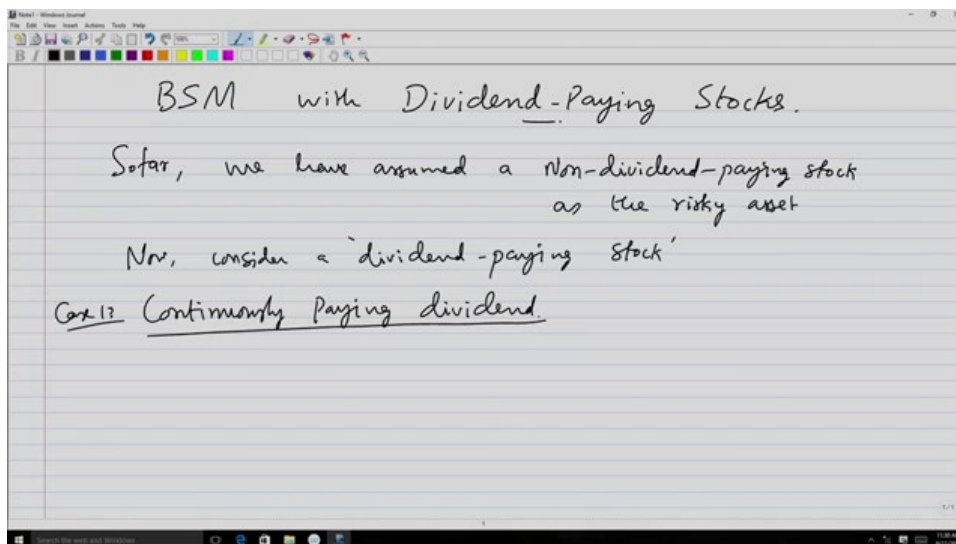 Note1 - Windows Journal
File Edit View Insert Actions Tools Help
BSM with Dividend-Paying Stocks.
Sofar, we have assumed a Non-dividend-paying stock
as the risky asset
Now, consider a 'dividend-paying stock'
Case 1: Continuously Paying dividend.
1/1
1
Search the web and Windows
11:38 AM